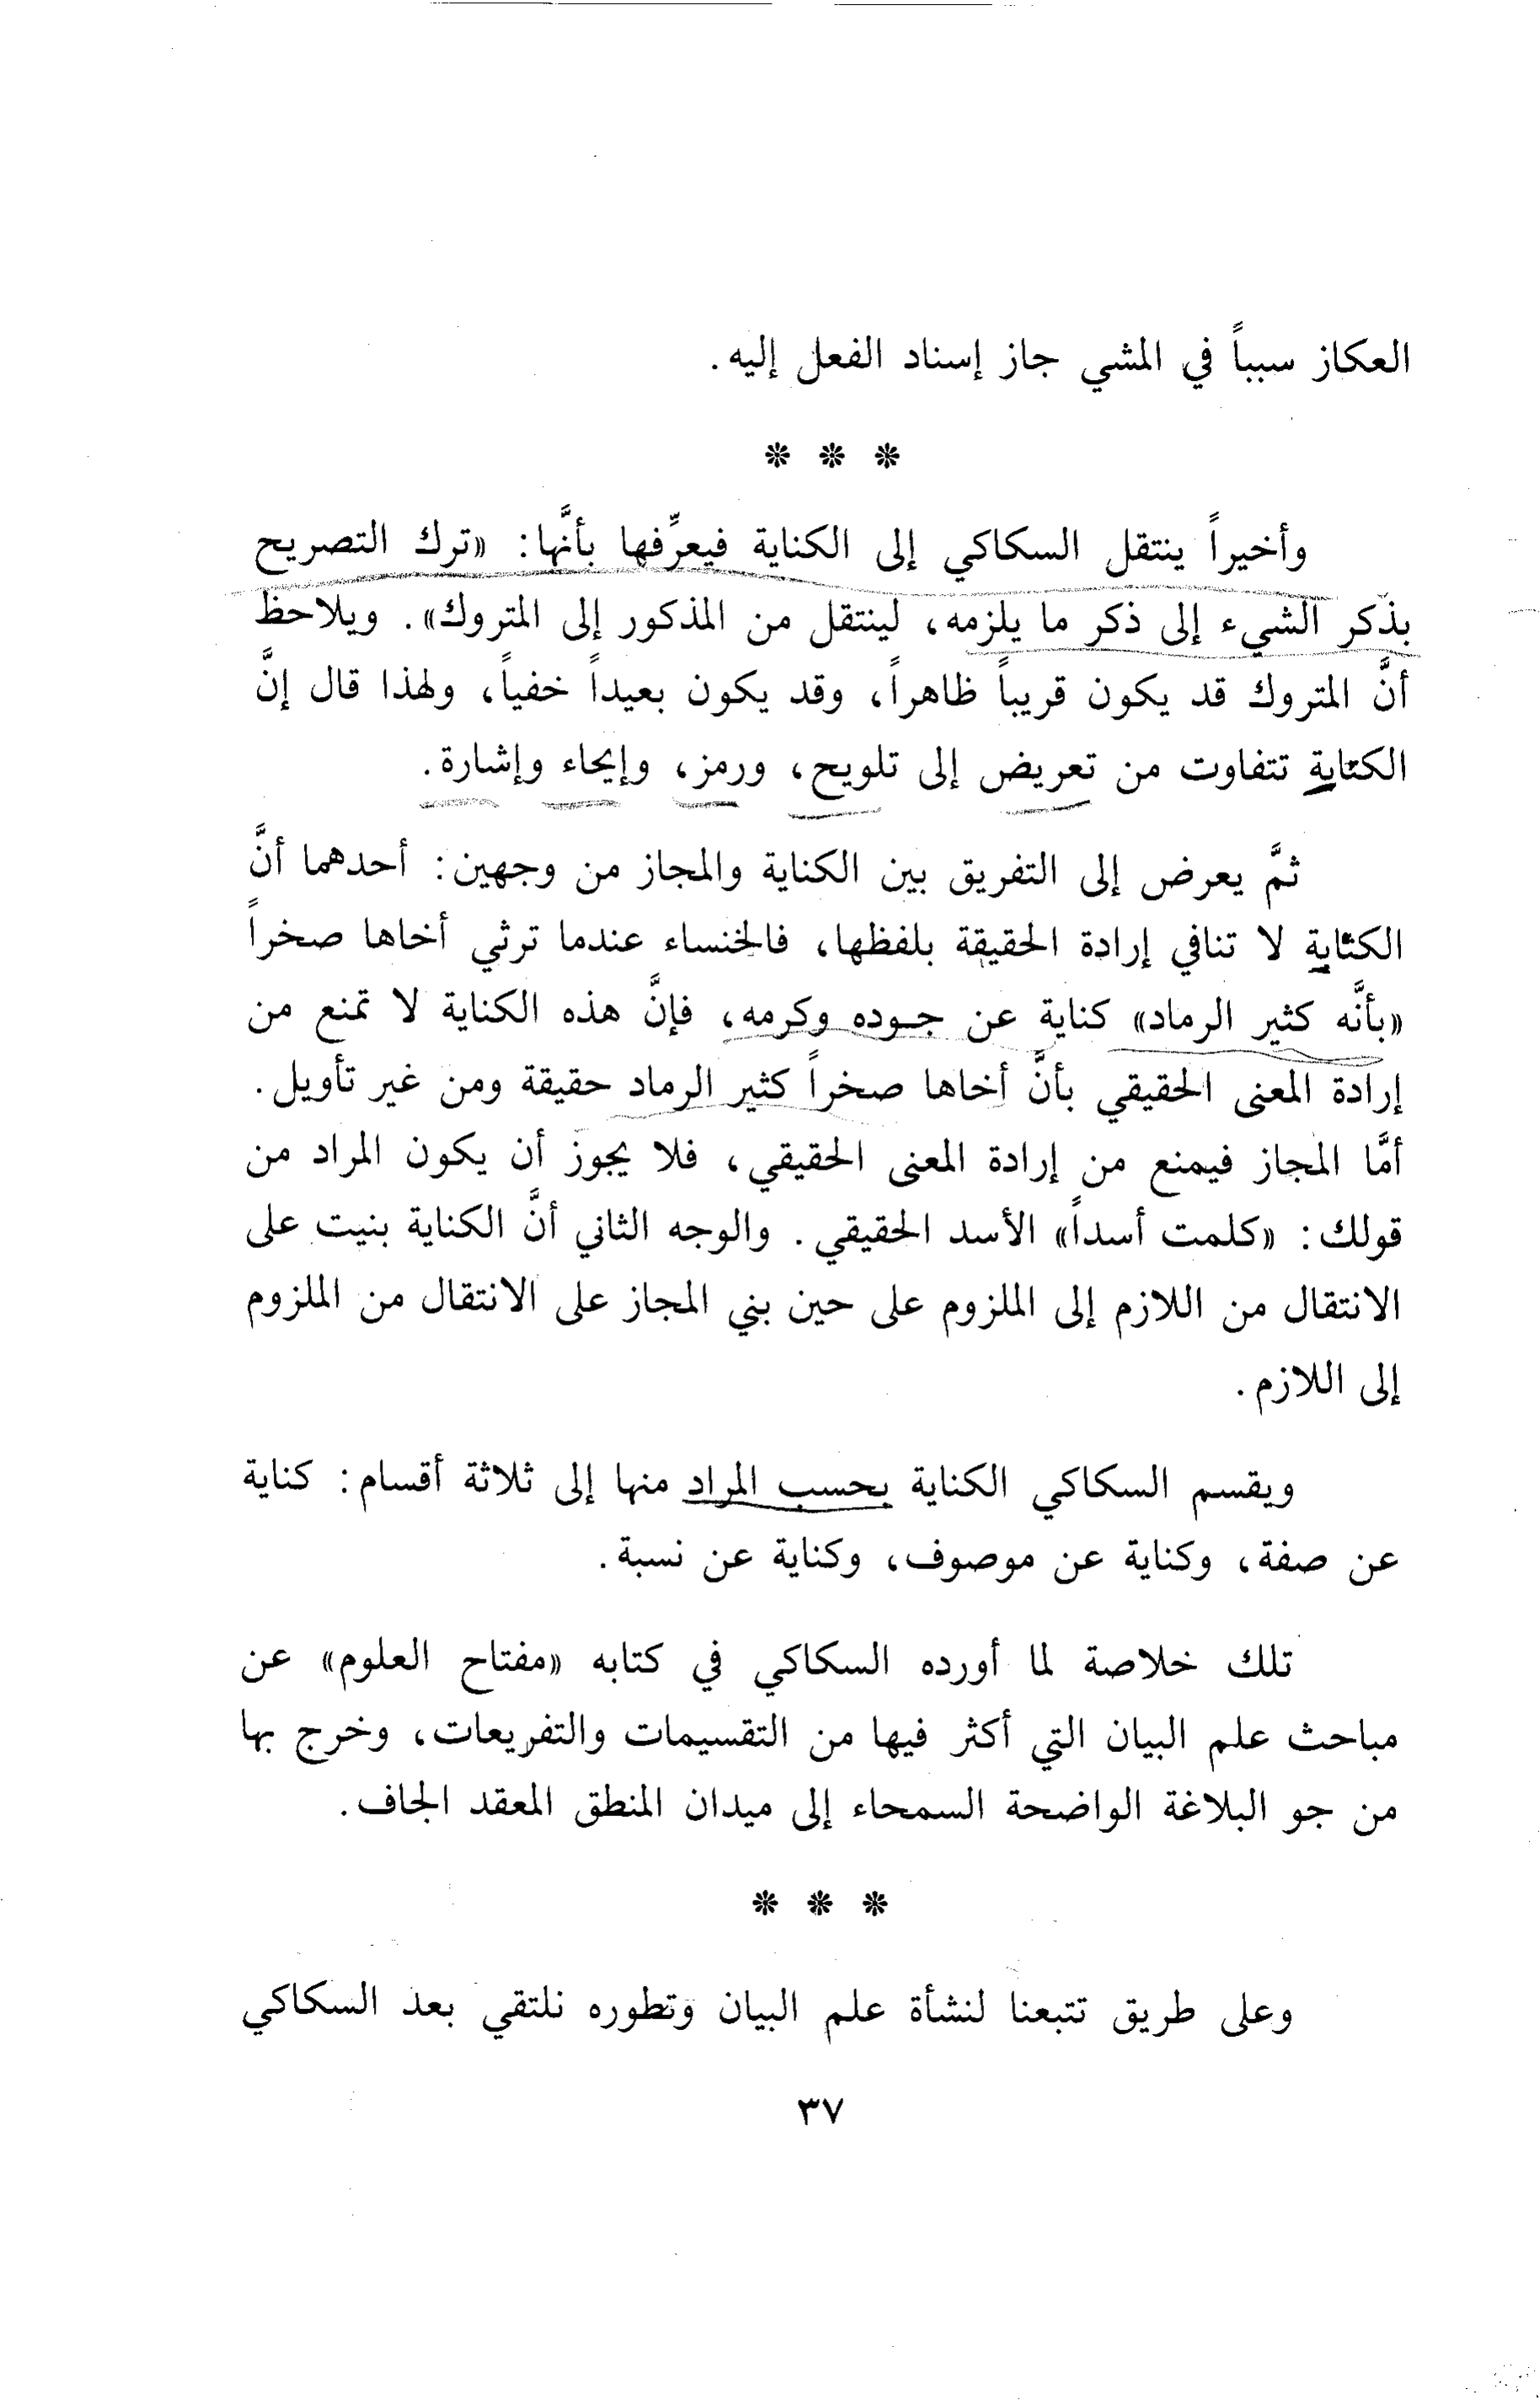 العكاز سبباً في المشي جاز إسناد الفعل إليه.
* * *
وأخيراً ينتقل السكاكي إلى الكناية فيعرِّفها بأنَّها: «ترك التصريح
بذكر الشيء إلى ذكر ما يلزمه، لينتقل من المذكور إلى المتروك». ويلاحظ
أنَّ المتروك قد يكون قريباً ظاهراً، وقد يكون بعيداً خفياً، ولهذا قال إنَّ
الكناية تتفاوت من تعريض إلى تلويح، ورمز، وإيحاء وإشارة.
ثمَّ يعرض إلى التفريق بين الكناية والمجاز من وجهين: أحدهما أنَّ
الكناية لا تنافي إرادة الحقيقة بلفظها، فالخنساء عندما ترثي أخاها صخراً
«بأنَّه كثير الرماد» كناية عن جوده وكرمه، فإنَّ هذه الكناية لا تمنع من
إرادة المعنى الحقيقي بأنَّ أخاها صخراً كثير الرماد حقيقة ومن غير تأويل.
أمَّا المجاز فيمنع من إرادة المعنى الحقيقي، فلا يجوز أن يكون المراد من
قولك: «كلمت أسداً» الأسد الحقيقي. والوجه الثاني أنَّ الكناية بنيت على
الانتقال من اللازم إلى الملزوم على حين بني المجاز على الانتقال من الملزوم
إلى اللازم.
ويقسم السكاكي الكناية بحسب المراد منها إلى ثلاثة أقسام: كناية
عن صفة، وكناية عن موصوف، وكناية عن نسبة.
تلك خلاصة لما أورده السكاكي في كتابه «مفتاح العلوم» عن
مباحث علم البيان التي أكثر فيها من التقسيمات والتفريعات، وخرج بها
من جو البلاغة الواضحة السمحاء إلى ميدان المنطق المعقد الجاف.
* * *
وعلى طريق تتبعنا لنشأة علم البيان وتطوره نلتقي بعد السكاكي
٣٧